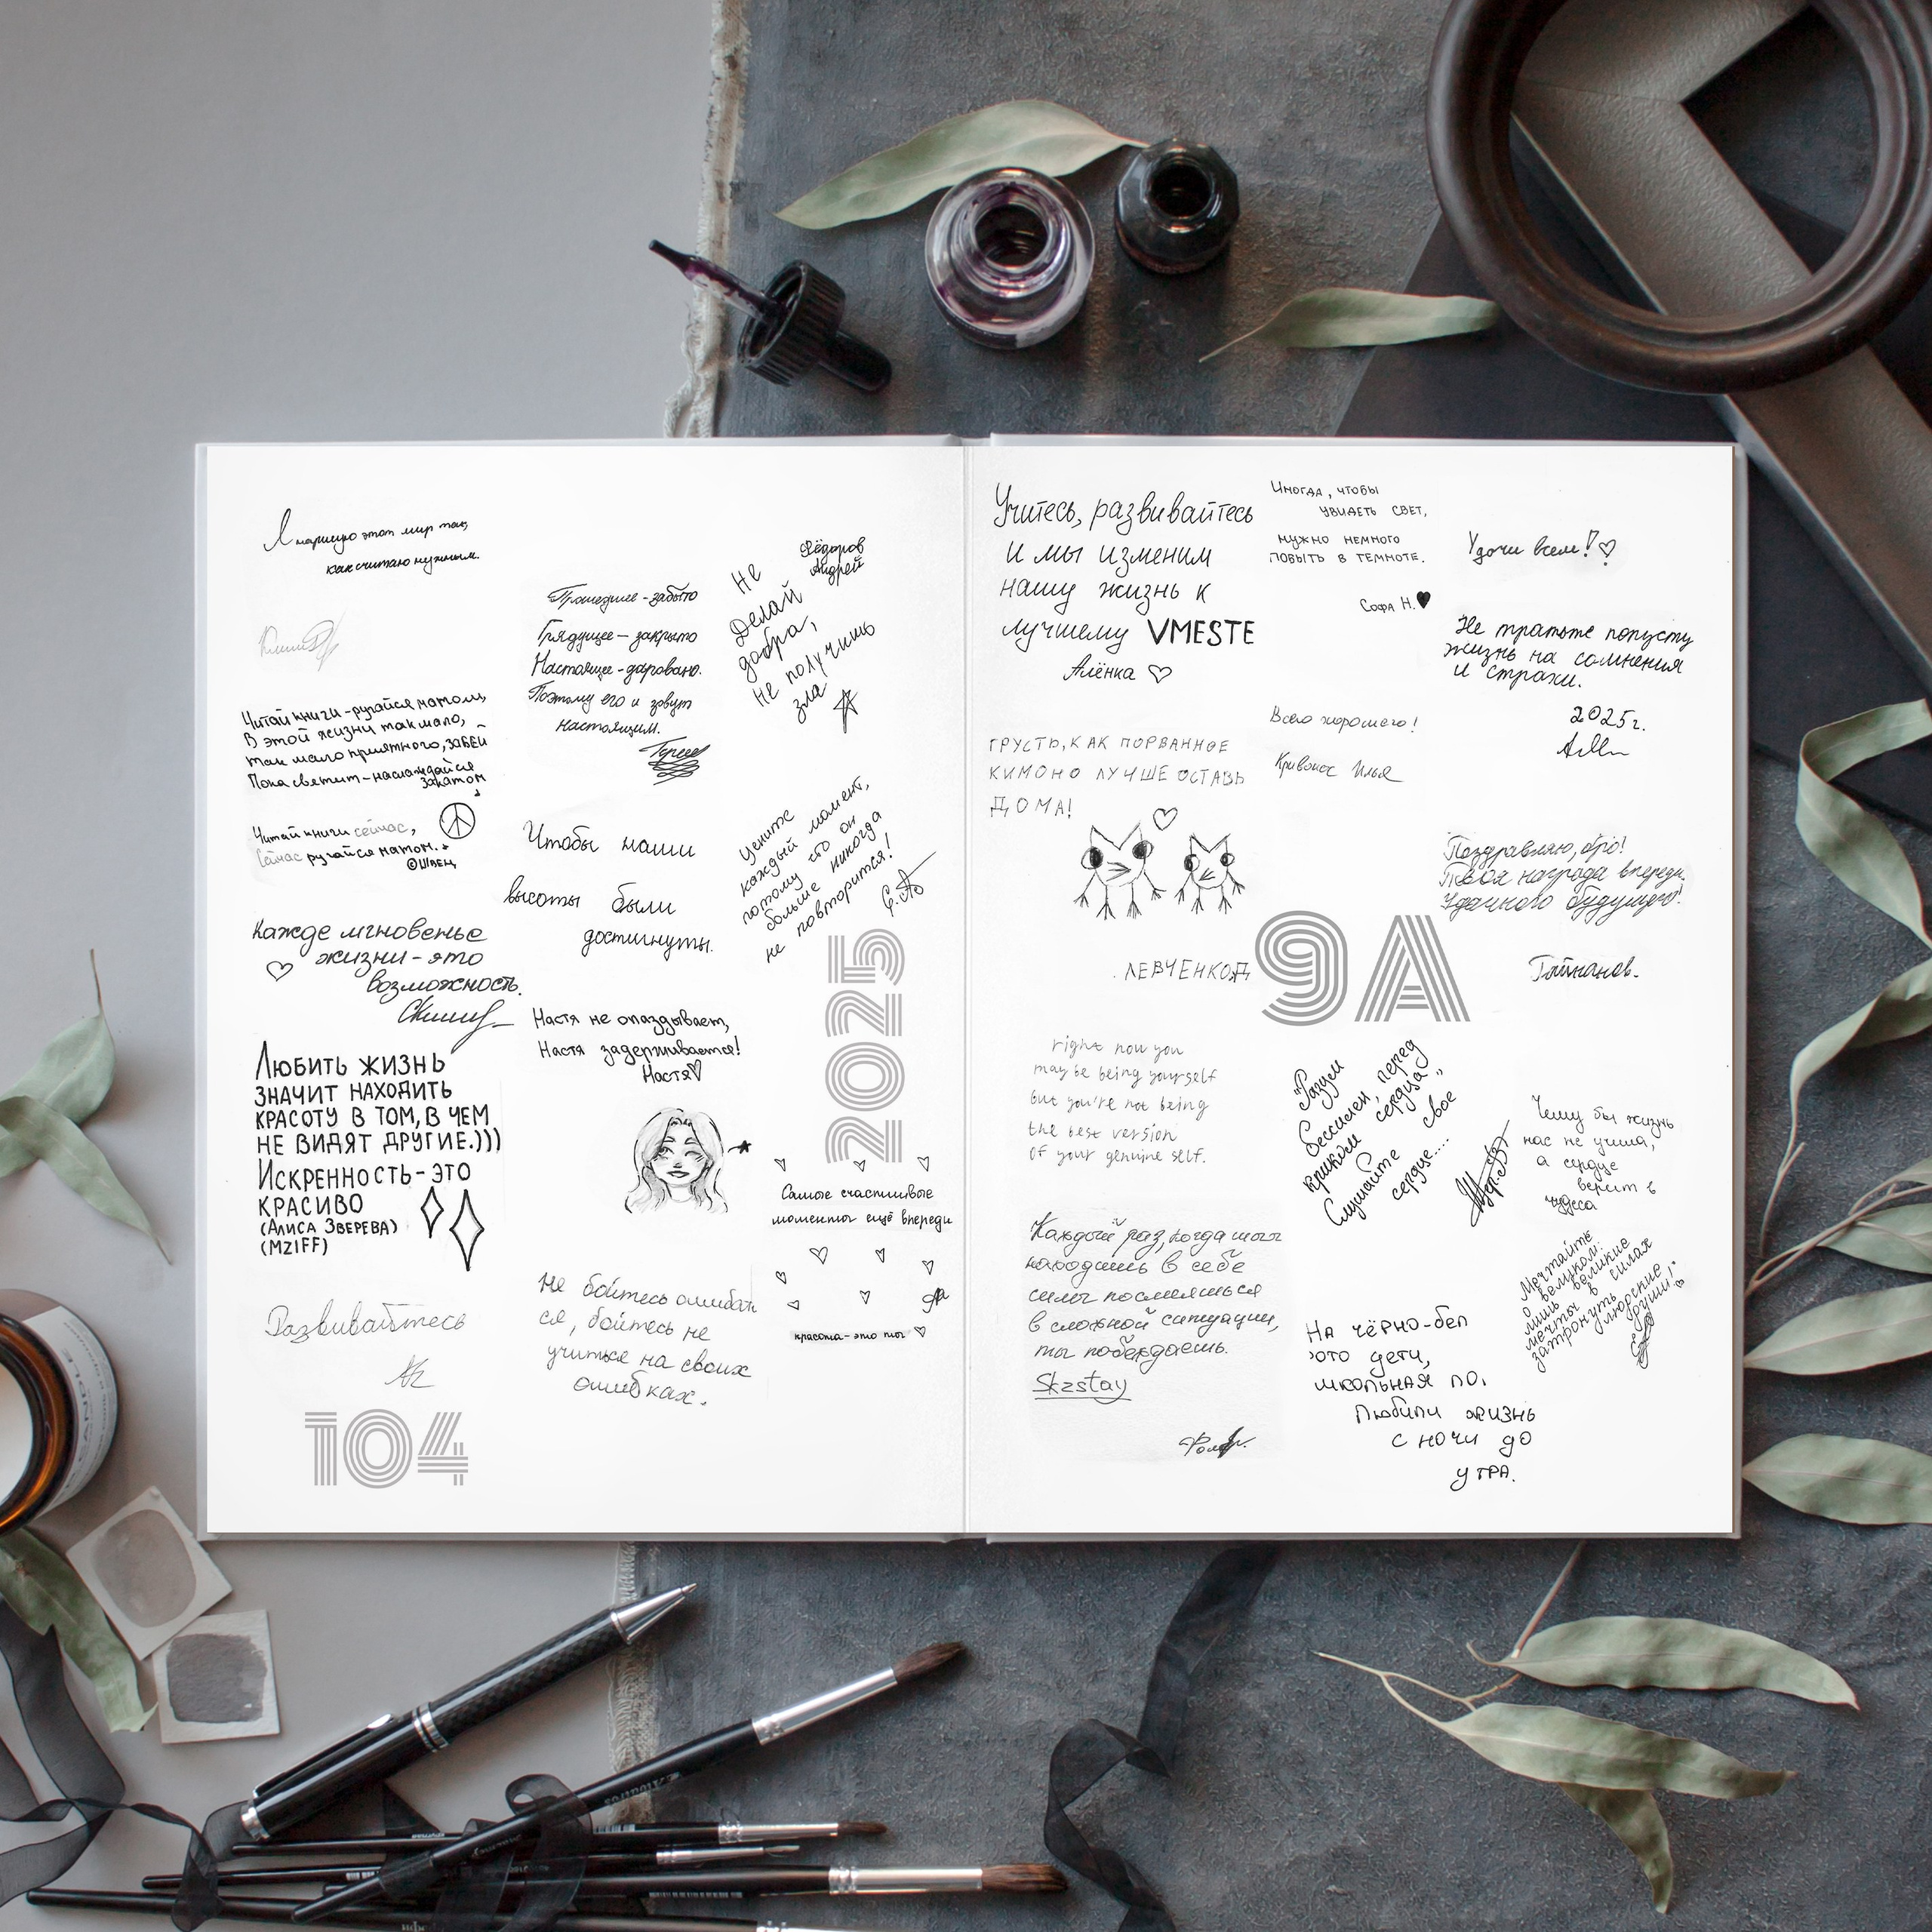 Я марширую этот мир так,
как считаю нужным.
Читай книги - ругайся матом,
В этой жизни так мало,
так мало приятного, забей
Пока светит - наслаждайся
закатом
Читай книги сейчас,
Сейчас ругайся матом.
©Швец
Кажде мгновенье
жизни - это
возможность.
Любить жизнь
значит находить
красоту в том, в чем
не видят другие.)))
Искренность - это
красиво
(Алиса Зверева)
(MZIFF)
Развивайтесь
104
Прошедшее - забыто
Грядущее — закрыто
Настоящее - даровано.
Поэтому его и зовут
настоящим.
Чтобы наши
высоты были
достигнуты.
Настя не опаздывает,
Настя задерживается!
Настя♡
Не бойтесь ошибать
ся, бойтесь не
учиться на своих
ошибках.
Фёдоров
Андрей
Не
Делай
добра,
не получишь
зла
Цените
каждый момент,
потому что он
больше никогда
не повторится!
2025
Самые счастливые
моменты ещё впереди
красота - это ты ♡
Учитесь, развивайтесь
и мы изменим
нашу жизнь к
лучшему VMESTE
Алёнка ♡
Иногда, чтобы
увидеть свет,
нужно немного
побыть в темноте.
Софа Н.♥
Удачи всем! ♡
Не тратьте попусту
жизнь на сомнения
и страхи.
2025г.
Всего хорошего!
Кривонос Илья
Грусть, как порванное
кимоно лучше оставь
дома!
Левченко Д
Поздравляю, бро!
Твоя награда впереди.
Удачного будущего!
9А
right now you
may be being yourself
but you're not being
the best version
of your genuine self.
"Разум
бессилен перед
криком сердца"
Слушайте свое
сердце...
Чему бы жизнь
нас не учила,
а сердце
верит в
чудеса
Каждый раз, когда ты
находишь в себе
силы посмеяться
в сложной ситуации,
ты побеждаешь.
Skzstay
Мечтайте
о великом:
лишь великие
мечты в силах
затронуть людские
души!
На чёрно-бел
ото дети,
школьная по,
Любили жизнь
с ночи до
утра.